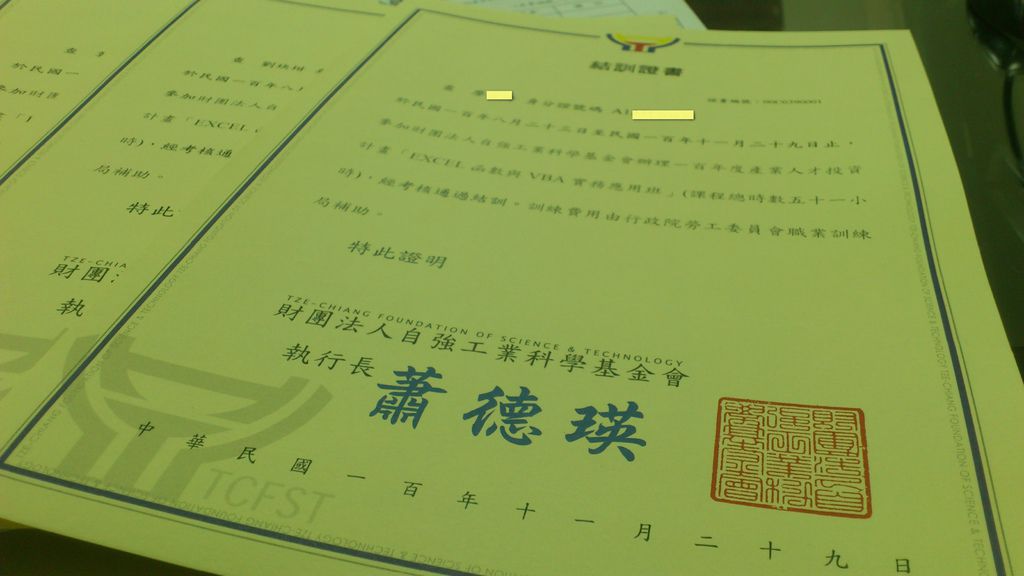 結訓證書
證書編號：
查 身分證號碼 A1
於民國一百年八月二十三日至民國一百年十一月二十九日止，
參加財團法人自強工業科學基金會辦理一百年度產業人才投資
計畫「EXCEL 函數與 VBA 實務應用班」(課程總時數五十一小
時)，經考核通過結訓。訓練費用由行政院勞工委員會職業訓練
局補助。
特此證明
TZE-CHIANG FOUNDATION OF SCIENCE & TECHNOLOGY
財團法人自強工業科學基金會
執行長 蕭德瑛
中華民國一百年十一月二十九日
TCFST
查
於民國一百年八
參加財團法人自
計畫「EXCEL
時)，經考核通
局補助。
特此
TZE-CHIA
財團
執
查
於民國一
參加財團